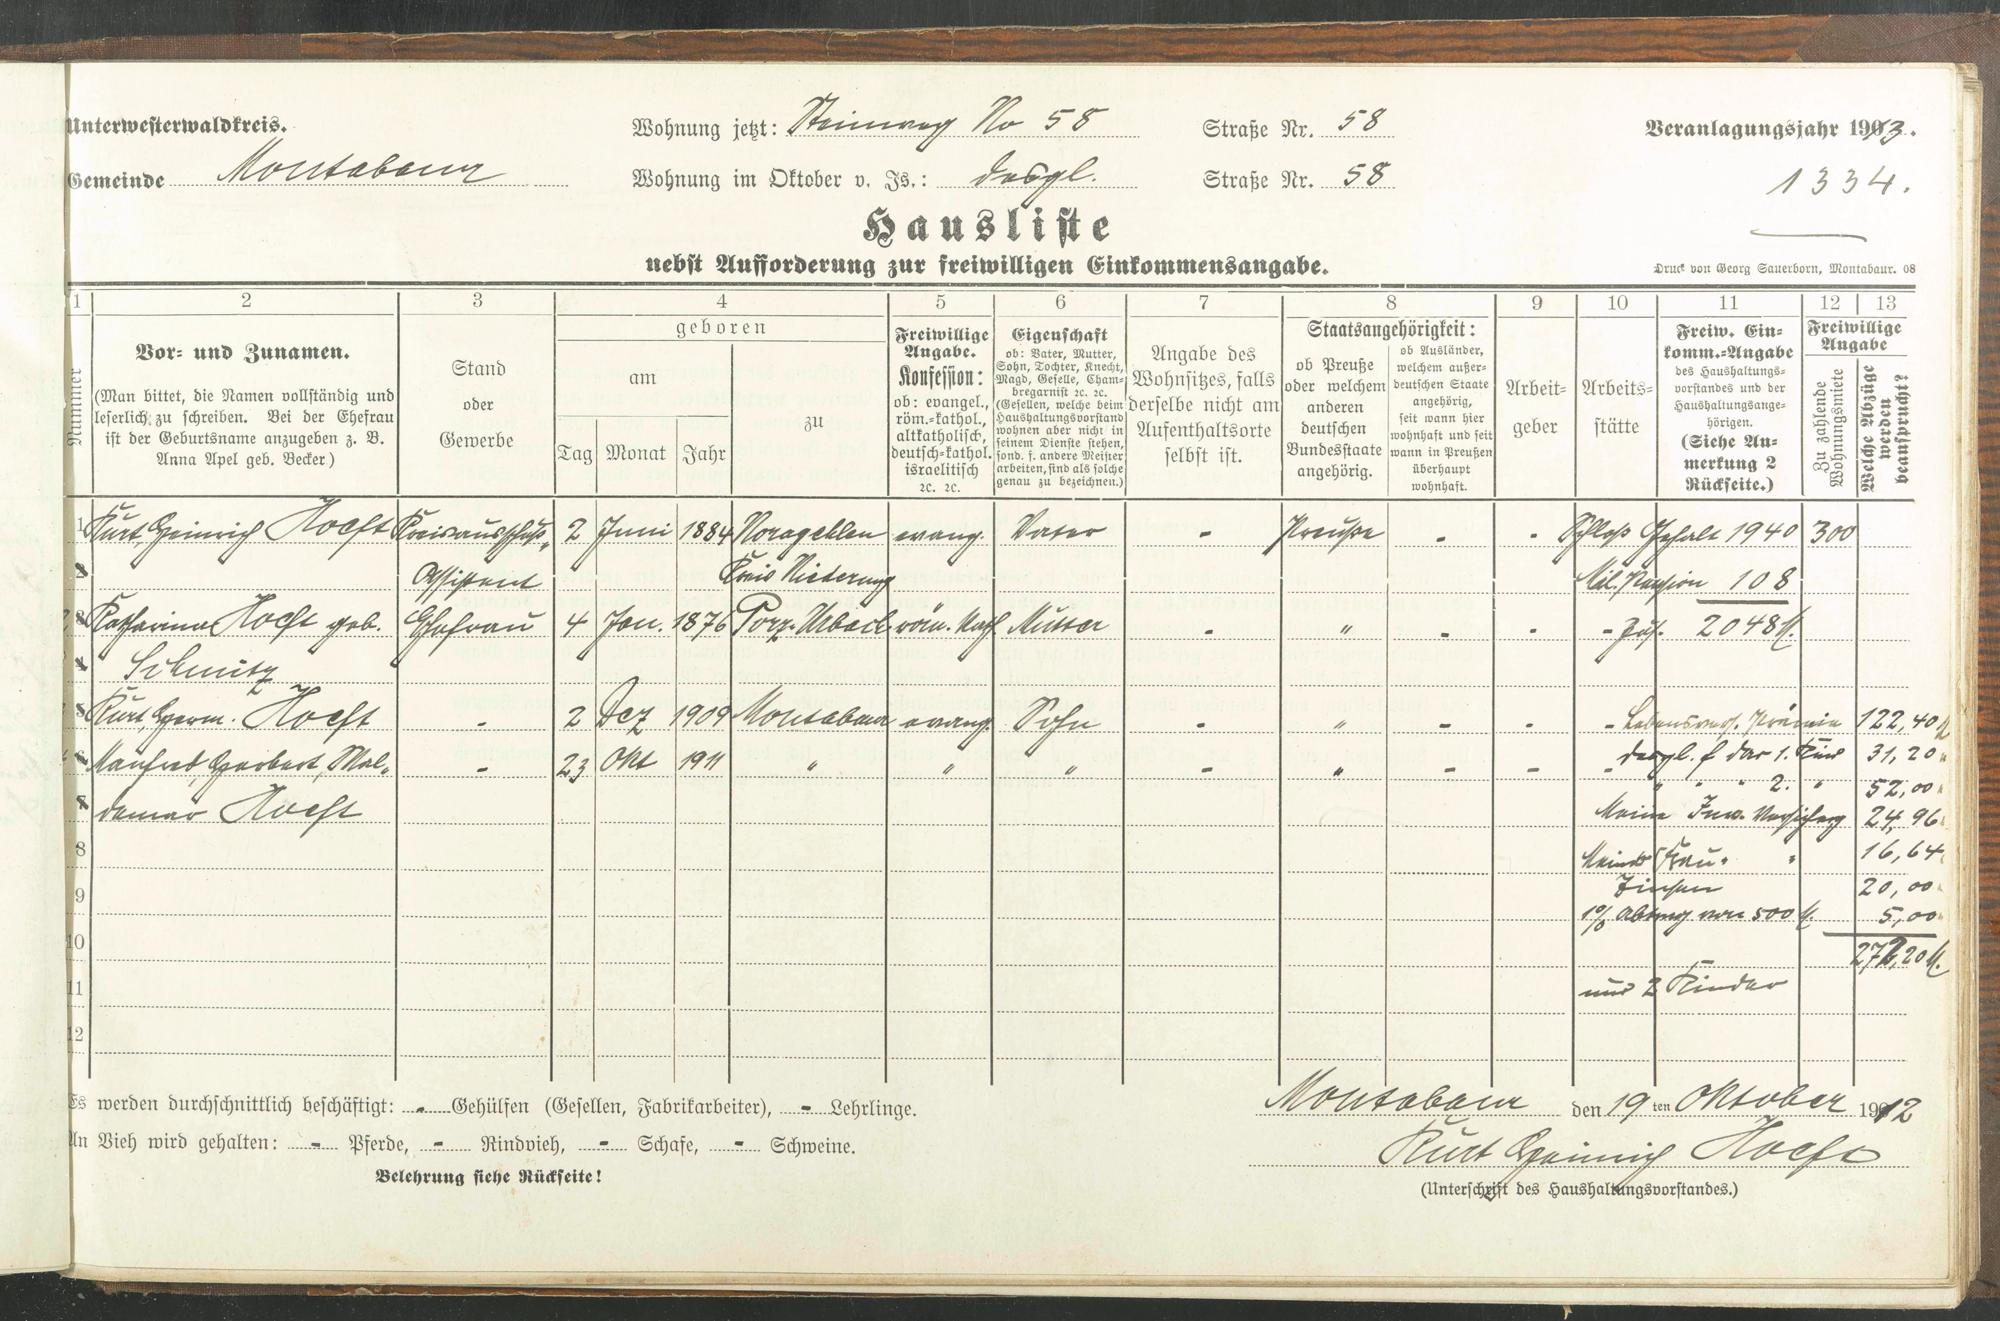 Unterwesterwaldkreis.
Wohnung jetzt: Steinweg No 58 Straße Nr. 58
Veranlagungsjahr 1913.
Gemeinde Montabaur
Wohnung im Oktober v. Js.: desgl. Straße Nr. 58
1334.
Hausliste
nebst Aufforderung zur freiwilligen Einkommensangabe.
Druck von Georg Sauerborn, Montabaur. 08
1 2 3 4 5 6 7 8 9 10 11 12 13
Nummer
Vor- und Zunamen.
(Man bittet, die Namen vollständig und
leserlich zu schreiben. Bei der Ehefrau
ist der Geburtsname anzugeben z. B.
Anna Apel geb. Becker)
Stand
oder
Gewerbe
geboren
am
Tag Monat Jahr
zu
Freiwillige
Angabe.
Konfession:
ob: evangel.,
röm.-kathol.,
altkatholisch,
deutsch-kathol.
israelitisch
ꝛc. ꝛc.
Eigenschaft
ob: Vater, Mutter,
Sohn, Tochter, Knecht,
Magd, Geselle, Cham-
bregarnist ꝛc. ꝛc.
(Gesellen, welche beim
Haushaltungsvorstand
wohnen aber nicht in
seinem Dienste stehen,
sond. f. andere Meister
arbeiten, sind als solche
genau zu bezeichnen.)
Angabe des
Wohnsitzes, falls
derselbe nicht am
Aufenthaltsorte
selbst ist.
Staatsangehörigkeit:
ob Preuße
oder welchem
anderen
deutschen
Bundesstaate
angehörig.
ob Ausländer,
welchem außer-
deutschen Staate
angehörig,
seit wann hier
wohnhaft und seit
wann in Preußen
überhaupt
wohnhaft.
Arbeit-
geber
Arbeits-
stätte
Freiw. Ein-
komm.-Angabe
des Haushaltungs-
vorstandes und der
Haushaltungsange-
hörigen.
(Siehe An-
merkung 2
Rückseite.)
Freiwillige
Angabe
Zu zahlende
Wohnungsmiete
Welche Abzüge
werden
beansprucht?
1 Kurt, Heinrich Hoeft Kreisausschuß- 2 Juni 1884 Noragehlen evang. Vater - Preuße - - Schloß Gehalt 1940 300
Assistent Kreis Niederung Mil. Pension 108
Katharina Hoeft geb. Ehefrau 4 Jan. 1876 Porz-Urbach röm. kath. Mutter - " - - - Zus. 2048 M.
Schmitz
Kurt, Herm. Hoeft - 2 Dez 1909 Montabaur evang. Sohn - " - - - Lebensvers. Prämie 122,40 M
Manfred, Herbert, Wal- - 23 Okt 1911 " " " - " - - - desgl. f. das 1. Kind 31,20 "
" " " 2. " 52,00 "
demar Hoeft
Meine Inv. Versicherg 24,96 "
8 Meiner Frau " " 16,64 "
9 Zinsen 20,00 "
1% Abtrag von 500 M. 5,00 "
10 272,20 M.
11 und 2 Kinder
12
Es werden durchschnittlich beschäftigt: - Gehülfen (Gesellen, Fabrikarbeiter), - Lehrlinge.
Montabaur den 19ten Oktober 1912
An Vieh wird gehalten: - Pferde, - Rindvieh, - Schafe, - Schweine.
Kurt Heinrich Hoeft
Belehrung siehe Rückseite!
(Unterschrift des Haushaltungsvorstandes.)